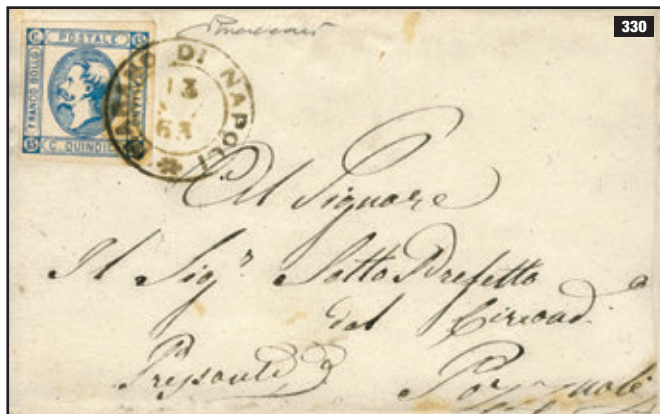 330
C POSTALE 15
FRANCO BOLLO
15 C. QUINDICI
MARANO DI NAPOLI
13
63
Al Signore
Il Sig.r Sotto Prefetto
del Circond.o
Pozzuoli